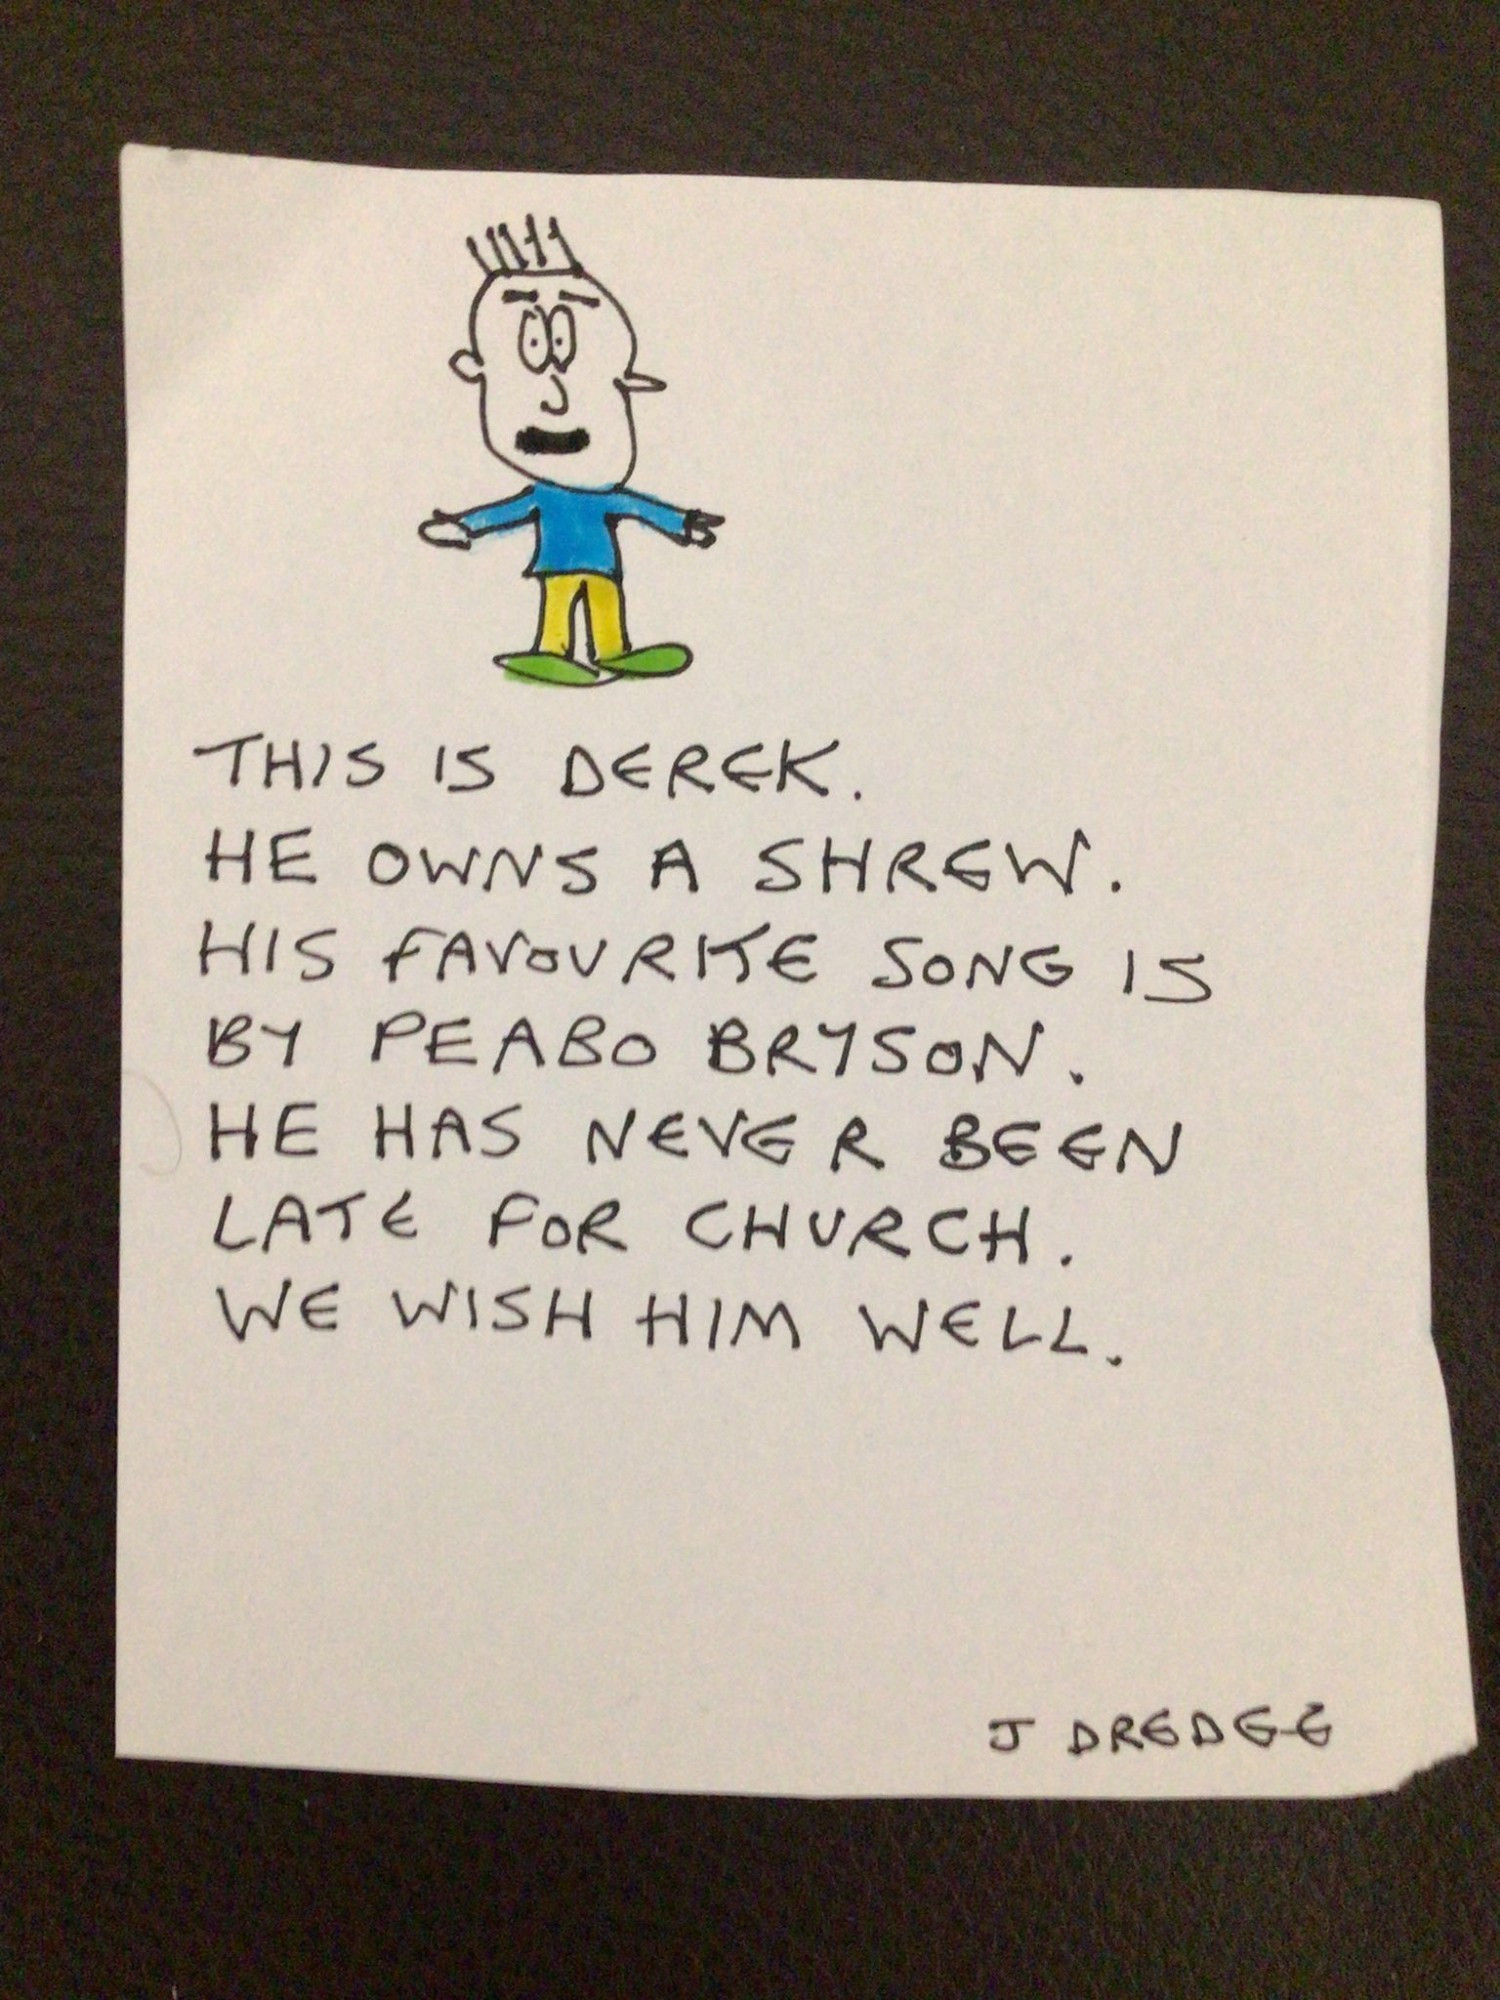 THIS IS DEREK.
HE OWNS A SHREW.
HIS FAVOURITE SONG IS
BY PEABO BRYSON.
HE HAS NEVER BEEN
LATE FOR CHURCH.
WE WISH HIM WELL.
J DREDGE